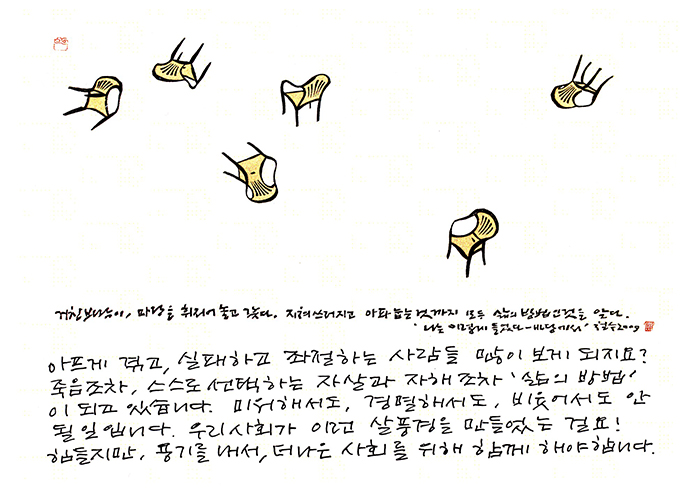 거친 바람이, 파란을 휘저어 놓고 갔다. 지쳐 쓰러지고 아파 눕는 것까지 모두 삶의 방법인 것을 안다.
'나는 이렇게 들었다 - 바람에서' 철수 2009
아프게 겪고, 실패하고 좌절하는 사람들 많이 보게 되지요?
죽음조차, 스스로 선택하는 자살과 자해조차 '삶의 방법'
이 되고 있습니다. 미워해서도, 경멸해서도, 비웃어서도 안
될 일입니다. 우리사회가 이런 살풍경을 만들었는 걸요!
힘들지만, 용기를 내서, 더 나은 사회를 위해 함께 해야합니다.